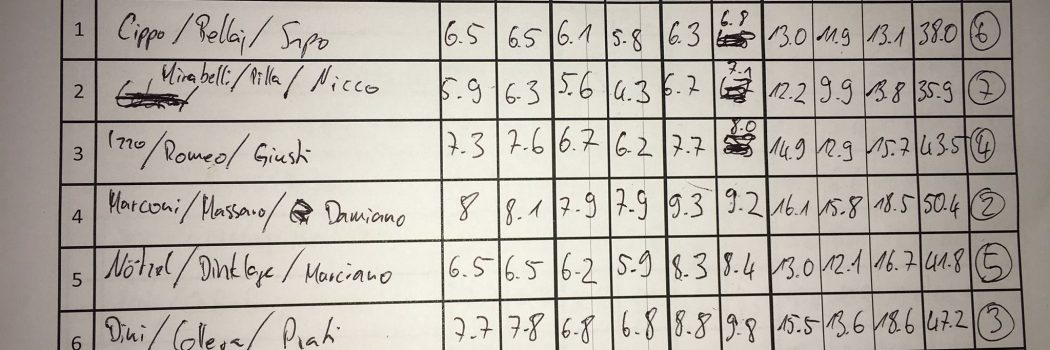 1 Cippo / Pellaj / Sapo 6.5 6.5 6.1 5.8 6.3 6.8 13.0 11.9 13.1 38.0 6
2 Mirabelli / Pilla / Nicco 5.9 6.3 5.6 4.3 6.7 7.1 12.2 9.9 13.8 35.9 7
3 Izzo / Romeo / Giusti 7.3 7.6 6.7 6.2 7.7 8.0 14.9 12.9 15.7 43.5 4
4 Marconi / Massaro / Damiano 8 8.1 7.9 7.9 9.3 9.2 16.1 15.8 18.5 50.4 2
5 Nötzel / Dinklage / Marciano 6.5 6.5 6.2 5.9 8.3 8.4 13.0 12.1 16.7 41.8 5
6 Dini / / Prati 7.7 7.8 6.8 6.8 8.8 9.8 15.5 13.6 18.6 47.2 3